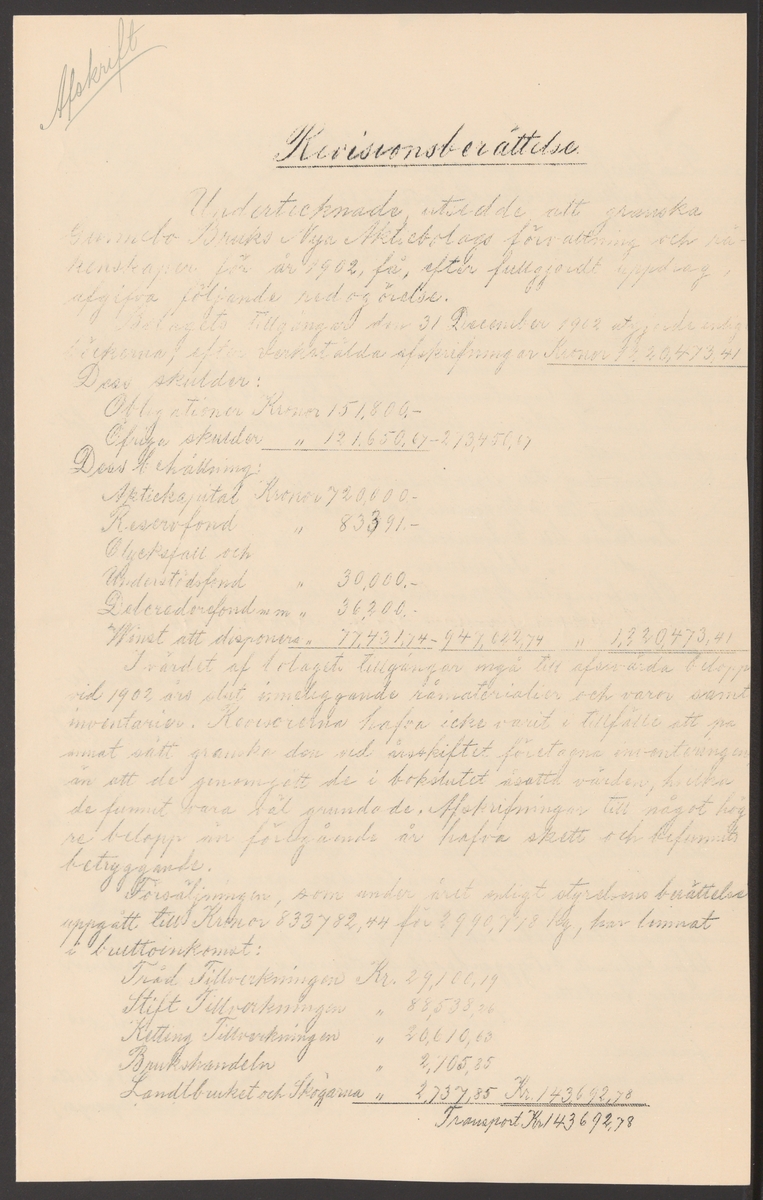 Afskrift
Revisionsberättelse
Undertecknade, utsedde att granska
Gunnebo Bruks Nya Aktiebolags förvaltning och rä-
kenskaper för år 1902, få, efter fullgjordt uppdrag,
afgifva följande redogörelse.
Bolagets tillgångar den 31 December 1902 utgjorde enligt
böckerna, efter verkstälda afskrifningar Kronor 1,220,473,41
Dess skulder:
Obligationer Kronor 151,800,-
Öfriga skulder " 121,650,67 - 273,450,67
Dess behållning:
Aktiekapital Kronor 720,000.-
Reservfond " 83391.-
Olycksfall och
Understödsfond " 30,000.-
Delcrederefond m m " 36,200.-
Winst att disponera " 77,431,74 - 947,022,74 " 1,220,473,41
I värdet af bolaget tillgångar ingå till afsevärda belopp
vid 1902 års slut inneliggande råmaterialier och varor samt
inventarier. Revisorerna hafva icke varit i tillfälle att på
annat sätt granska den ved årsskiftet företagna inventeringen,
än att de genomgått de i bokslutet åsatta värden, hvilka
de funnit vara väl grundade. Afskrifningar till något hög
re belopp än föregående år hafva skett och befunnits
betryggande.
Försäljningen, som under året enligt styrelsens berättelse
uppgått till Kronor 833782,44 för 2990,718 Kg, har lemnat
i bruttoinkomst:
Tråd Tillverkningen Kr. 29,100,19
Stift Tillverkningen " 88,538,26
Ketting Tillverkningen " 20,610,63
Brukshandeln " 2,105,85
Landtbruket och Skogarna " 2,737,85 Kr. 143,692,78
Transport Kr. 143692,78